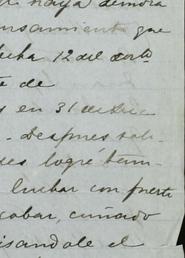 haya demora
ensamiento que
fecha 12 del corte
te de
s en 31 de Dic
. Despues sali-
des logré tam-
luchar con fuerte
cobar, cuñado
isandole el